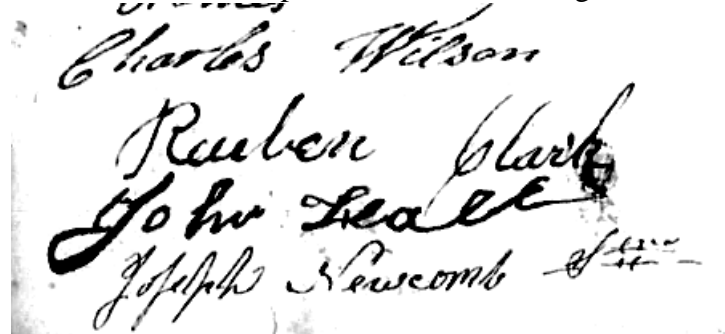 Charles Wilson
Reuben Clark
John
Joseph Newcomb